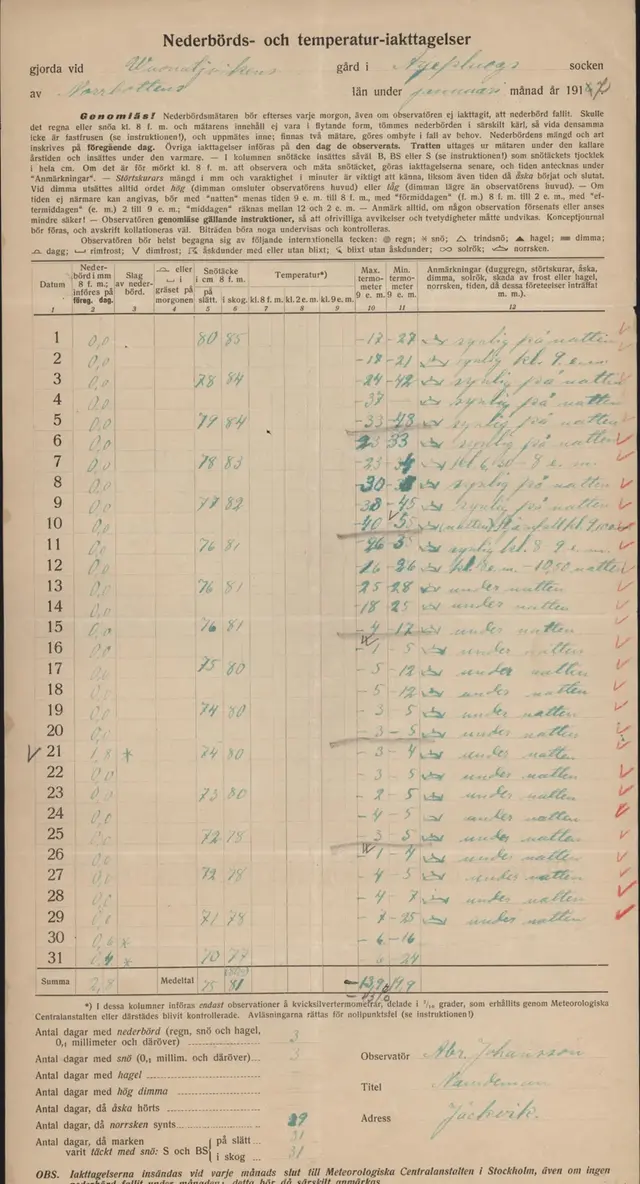 Nederbörds- och temperatur-iakttagelser
gjorda vid Wuonatjviken gård i Arjepluogs socken
av Norrbottens län under januari månad år 191
Genomläs! Nederbördsmätaren bör efterses varje morgon, även om observatören ej iakttagit, att nederbörd fallit. Skulle
det regna eller snöa kl. 8 f. m. och mätarens innehåll ej vara i flytande form, tömmes nederbörden i särskilt kärl, så vida densamma
icke är fastfrusen (se instruktionen!), och uppmätes inne; finnas två mätare, göres ombyte i fall av behov. Nederbördens mängd och art
inskrives på föregående dag. Övriga iakttagelser införas på den dag de observerats. Tratten uttages ur mätaren under den kallare
årstiden och insättes under den varmare. — I kolumnen snötäcke insättes såväl B, BS eller S (se instruktionen!) som snötäckets tjocklek
i hela cm. Om det är för mörkt kl. 8 f. m. att observera och mäta snötäcket, göras iakttagelserna senare, och tiden antecknas under
"Anmärkningar". — Störtskurars mängd i mm och varaktighet i minuter är viktigt att känna, liksom även tiden då åska börjat och slutat.
Vid dimma utsättes alltid ordet hög (dimman omsluter observatörens huvud) eller låg (dimman lägre än observatörens huvud). — Om
tiden ej närmare kan angivas, bör med "natten" menas tiden 9 e. m. till 8 f. m., med "förmiddagen" (f. m.) 8 f. m. till 2 e. m., med "ef-
termiddagen" (e. m.) 2 till 9 e. m.; "middagen" räknas mellan 12 och 2 e. m. — Anmärk alltid, om någon observation försenats eller anses
mindre säker! — Observatören genomläse gällande instruktioner, så att ofrivilliga avvikelser och tvetydigheter måtte undvikas. Konceptjournal
bör föras, och avskrift kollationeras väl. Biträden böra noga undervisas och kontrolleras.
Observatören bör helst begagna sig av följande internationella tecken: regn; snö; trindsnö; hagel; dimma;
dagg; rimfrost; dimfrost; åskdunder med eller utan blixt; blixt utan åskdunder; solrök; norrsken.
Datum Neder-börd i mm 8 f. m.; införes på föreg. dag. Slag av neder-börd. eller i gräset på morgonen Snötäcke i cm 8 f. m. på slätt. i skog. Temperatur*) kl. 8 f. m. kl. 2 e. m. kl. 9 e. m. Max. termo-meter 9 e. m. Min. termo-meter 9 e. m. Anmärkningar (duggregn, störtskurar, åska, dimma, solrök, skada av frost eller hagel, norrsken, tiden, då dessa företeelser inträffat m. m.).
1 2 3 4 5 6 7 8 9 10 11 12
1 0,0 80 85 -17 -27 synlig på natten
2 0,0 -21 synlig kl. 9 e. m.
3 0,0 78 84 -24 -42 synlig på natten
4 0,0 -37 — synlig på natten
5 0,0 79 84 -33 -43 synlig på natten
6 0,0 23 33 synlig på natten
7 0,0 78 83 -23 kl 8 e. m.
8 0,0 -30 synlig på natten
9 0,0 77 82 -38 -45 synlig på natten
10 0,0 -40 55
11 0,0 76 81 -26 synlig kl. 8 9 e. m.
12 0,0 16 -26 10,50 natten
13 0,0 76 81 25 -28 under natten
14 0,0 -18 -25 under natten
15 0,0 76 81 -4 -17 under natten
16 0,0 1 -5 under natten
17 0,0 75 80 -5 -12 under natten
18 0,0 -5 -12 under natten
19 0,0 74 80 -3 -5 under natten
20 0,0 -3 -5 under natten
21 1,8 74 80 -3 -4 under natten
22 0,0 -3 -5 under natten
23 0,0 73 80 -2 -5 under natten
24 0,0 -4 -5 under natten
25 0,0 72 78 -3 -5 under natten
26 0,0 1 -4 under natten
27 0,0 72 78 -4 -5 under natten
28 0,0 -4 -7 under natten
29 0,0 71 78 -7 -25 under natten
30 0,6 -6 -16
31 0,4 70 77 -6 -24
Summa 2,8 Medeltal 75 81 -13,9
*) I dessa kolumner införas endast observationer å kvicksilvertermometrar, delade i 1/10 grader, som erhållits genom Meteorologiska
Centralanstalten eller därstädes blivit kontrollerade. Avläsningarna rättas för nollpunktsfel (se instruktionen!)
Antal dagar med nederbörd (regn, snö och hagel, 0,1 millimeter och däröver) 3
Antal dagar med snö (0,1 millim. och däröver) 3
Antal dagar med hagel —
Antal dagar med hög dimma
Antal dagar, då åska hörts
Antal dagar, då norrsken synts 29
Antal dagar, då marken varit täckt med snö: S och BS på slätt 31
i skog 31
Observatör Abr. Johansson
Titel
Adress Jäckvik.
OBS. Iakttagelserna insändas vid varje månads slut till Meteorologiska Centralanstalten i Stockholm, även om ingen
nederbörd fallit under månaden; detta bör då särskilt anmärkas.